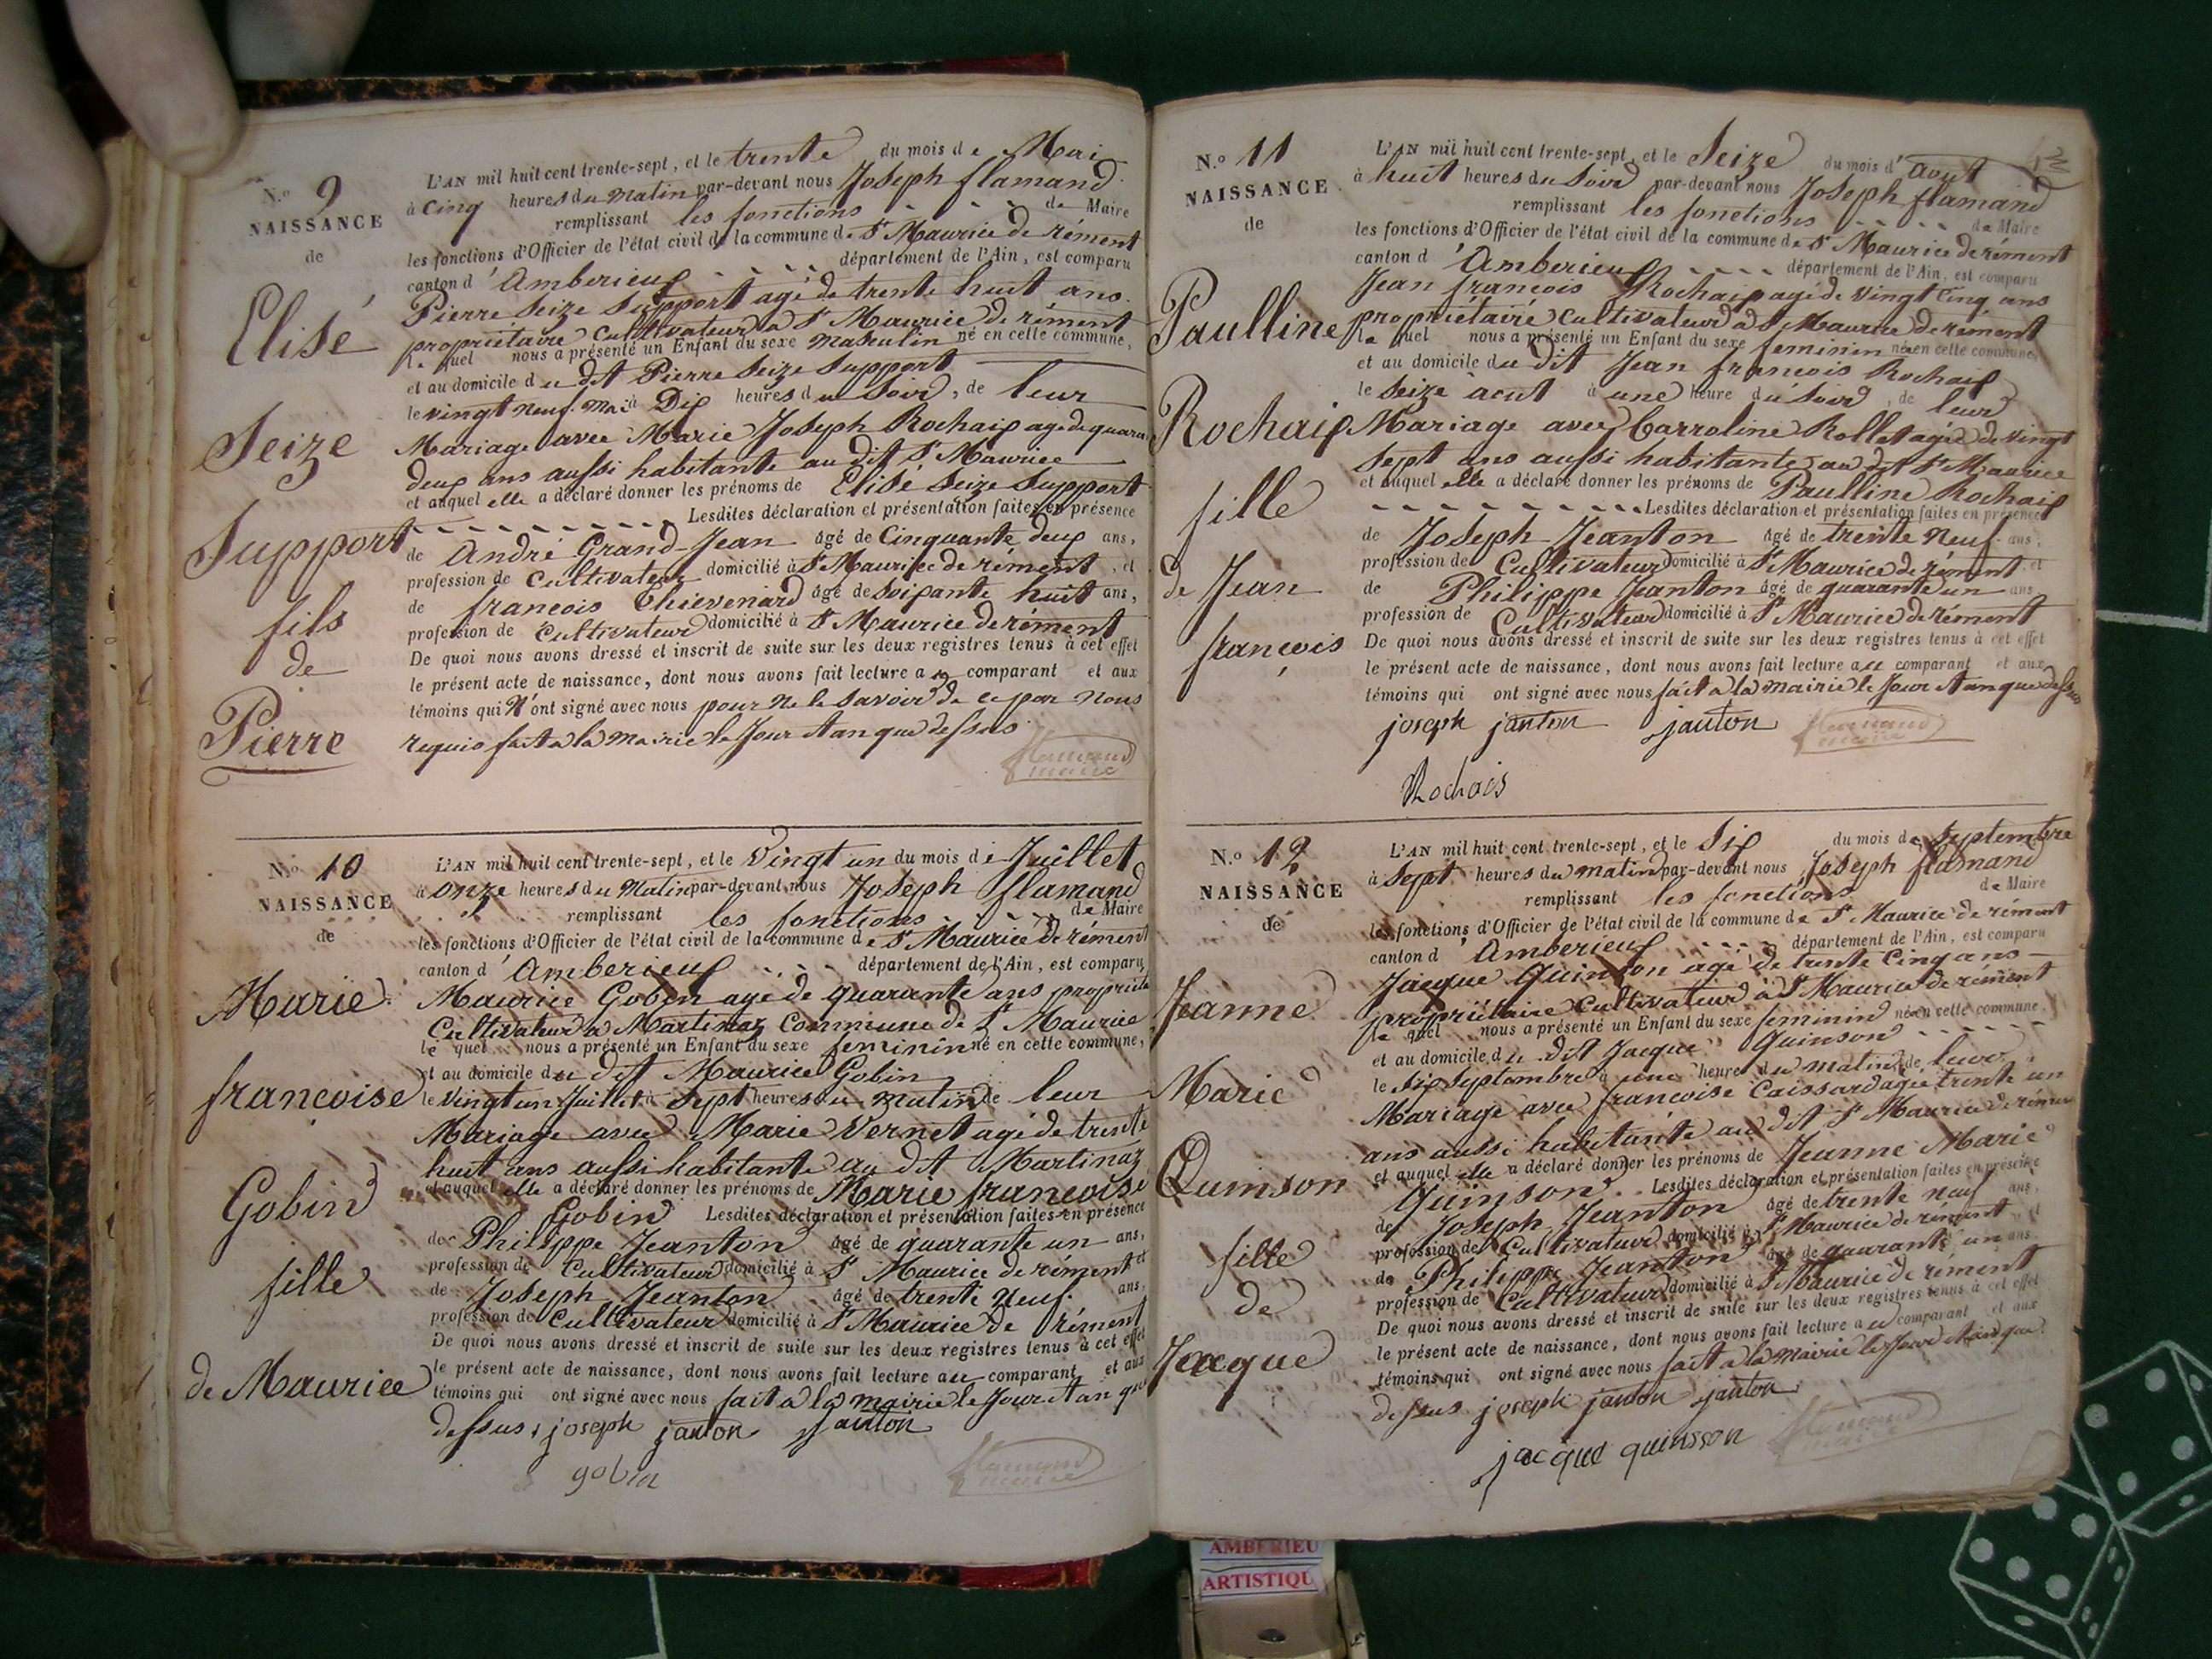 N.º 9
NAISSANCE
de
Elisé
Seize
Support
fils
de
Pierre
L'AN mil huit cent trente-sept, et le trente du mois de Mai
à Cinq heures du Matin par-devant nous Joseph flamand
remplissant les fonctions de Maire
les fonctions d'Officier de l'état civil de la commune de St Maurice de rément
canton d'Amberieux département de l'Ain, est comparu
Pierre Seize Support agé de trente huit ans
propriétaire Cultivateur a St Maurice de rément
le quel nous a présenté un Enfant du sexe Masculin né en cette commune,
et au domicile du dit Pierre Seize Support
le vingt neuf Mai à Dix heures du Soir, de leur
Mariage avec Marie Joseph Rochaix agé de quara
deux ans aussi habitante au dit St Maurice
et auquel elle a déclaré donner les prénoms de Elisé Seize Support
Lesdites déclaration et présentation faites en présence
de André Grand-Jean âgé de Cinquante deux ans,
profession de Cultivateur domicilié à St Maurice de rément, et
de francois Thievenard âgé de soixante huit ans,
profession de Cultivateur domicilié à St Maurice de rément
De quoi nous avons dressé et inscrit de suite sur les deux registres tenus à cet effet
le présent acte de naissance, dont nous avons fait lecture au comparant et aux
témoins qui n'ont signé avec nous pour ne le savoir de ce par nous
requis fait a la mairie le Jour et an que dessus
flamand
maire
N.º 10
NAISSANCE
de
Marie
francoise
Gobin
fille
de Maurice
L'AN mil huit cent trente-sept, et le Vingt un du mois de Juillet
à onze heures du Matin par-devant nous Joseph flamand
remplissant les fonctions de Maire
les fonctions d'Officier de l'état civil de la commune de St Maurice de rément
canton d'Amberieux département de l'Ain, est comparu
Maurice Gobin agé de quarante ans propriéta
Cultivateur a Martinaz Commune de St Maurice
le quel nous a présenté un Enfant du sexe feminin né en cette commune,
et au domicile du dit Maurice Gobin
le vingt un Juillet à sept heures du matin de leur
Mariage avec Marie Vernet agé de trente
huit ans aussi habitante au dit Martinaz
et auquel elle a déclaré donner les prénoms de Marie francoise
Gobin Lesdites déclaration et présentation faites en présence
de Philippe Jeanton âgé de quarante un ans,
profession de Cultivateur domicilié à St Maurice de rément et
de Joseph Jeanton âgé de trente neuf ans,
profession de Cultivateur domicilié à St Maurice de rément
De quoi nous avons dressé et inscrit de suite sur les deux registres tenus à cet effet
le présent acte de naissance, dont nous avons fait lecture au comparant et aux
témoins qui ont signé avec nous fait a la mairie le Jour et an que
dessus joseph janton janton
gobin
flamand
maire
N.º 11
NAISSANCE
de
Paulline
Rochaix
fille
de Jean
francois
L'AN mil huit cent trente-sept, et le Seize du mois d'Aout
à huit heures du Soir par-devant nous Joseph flamand
remplissant les fonctions de Maire
les fonctions d'Officier de l'état civil de la commune de St Maurice de rément
canton d'Amberieux département de l'Ain, est comparu
Jean francois Rochaix agé de vingt Cinq ans
propriétairé Cultivateur a St Maurice de rément
le quel nous a présenté un Enfant du sexe feminin née en cette commune,
et au domicile du dit Jean francois Rochaix
le Seize aout à une heure du Soir, de leur
Mariage avec Carroline Rollet agée de Vingt
Sept ans aussi habitante au dit St Maurice
et auquel elle a déclaré donner les prénoms de Paulline Rochaix
Lesdites déclaration et présentation faites en présence
de Joseph Jeanton âgé de trente neuf ans,
profession de Cultivateur domicilié à St Maurice de rément et
de Philippe Jeanton âgé de quarante un ans
profession de Cultivateur domicilié à St Maurice de rément
De quoi nous avons dressé et inscrit de suite sur les deux registres tenus à cet effet
le présent acte de naissance, dont nous avons fait lecture au comparant et aux
témoins qui ont signé avec nous fait a la mairie le Jour et an que dessus
joseph janton janton flamand
maire
Rochais
N.º 12
NAISSANCE
de
Jeanne
Marie
Quinson
fille
de
Jacque
L'AN mil huit cent trente-sept, et le Six du mois de Septembre
à Sept heures du matin par-devant nous Joseph flamand
remplissant les fonctions de Maire
les fonctions d'Officier de l'état civil de la commune de St Maurice de rément
canton d'Amberieux département de l'Ain, est comparu
Jacque Quinson agé de trente Cinq ans
propriétaire Cultivateur a St Maurice de rément
le quel nous a présenté un Enfant du sexe feminin née en cette commune,
et au domicile du dit Jacque Quinson
le Six Septembre à une heure du matin, de leur
Mariage avec francoise Caissard agée trente un
ans aussi habitante au dit St Maurice de rément
et auquel elle a déclaré donner les prénoms de Jeanne Marie
Quinson Lesdites déclaration et présentation faites en présence
de Joseph Jeanton âgé de trente neuf ans,
profession de Cultivateur domicilié à St Maurice de rément et
de Philippe Jeanton âgé de quarante un ans
profession de Cultivateur domicilié à St Maurice de rément
De quoi nous avons dressé et inscrit de suite sur les deux registres tenus à cet effet
le présent acte de naissance, dont nous avons fait lecture au comparant et aux
témoins qui ont signé avec nous fait a la mairie le Jour et an que
dessus joseph janton janton
jacque quinsson
flamand
AMBERIEU
ARTISTIQU